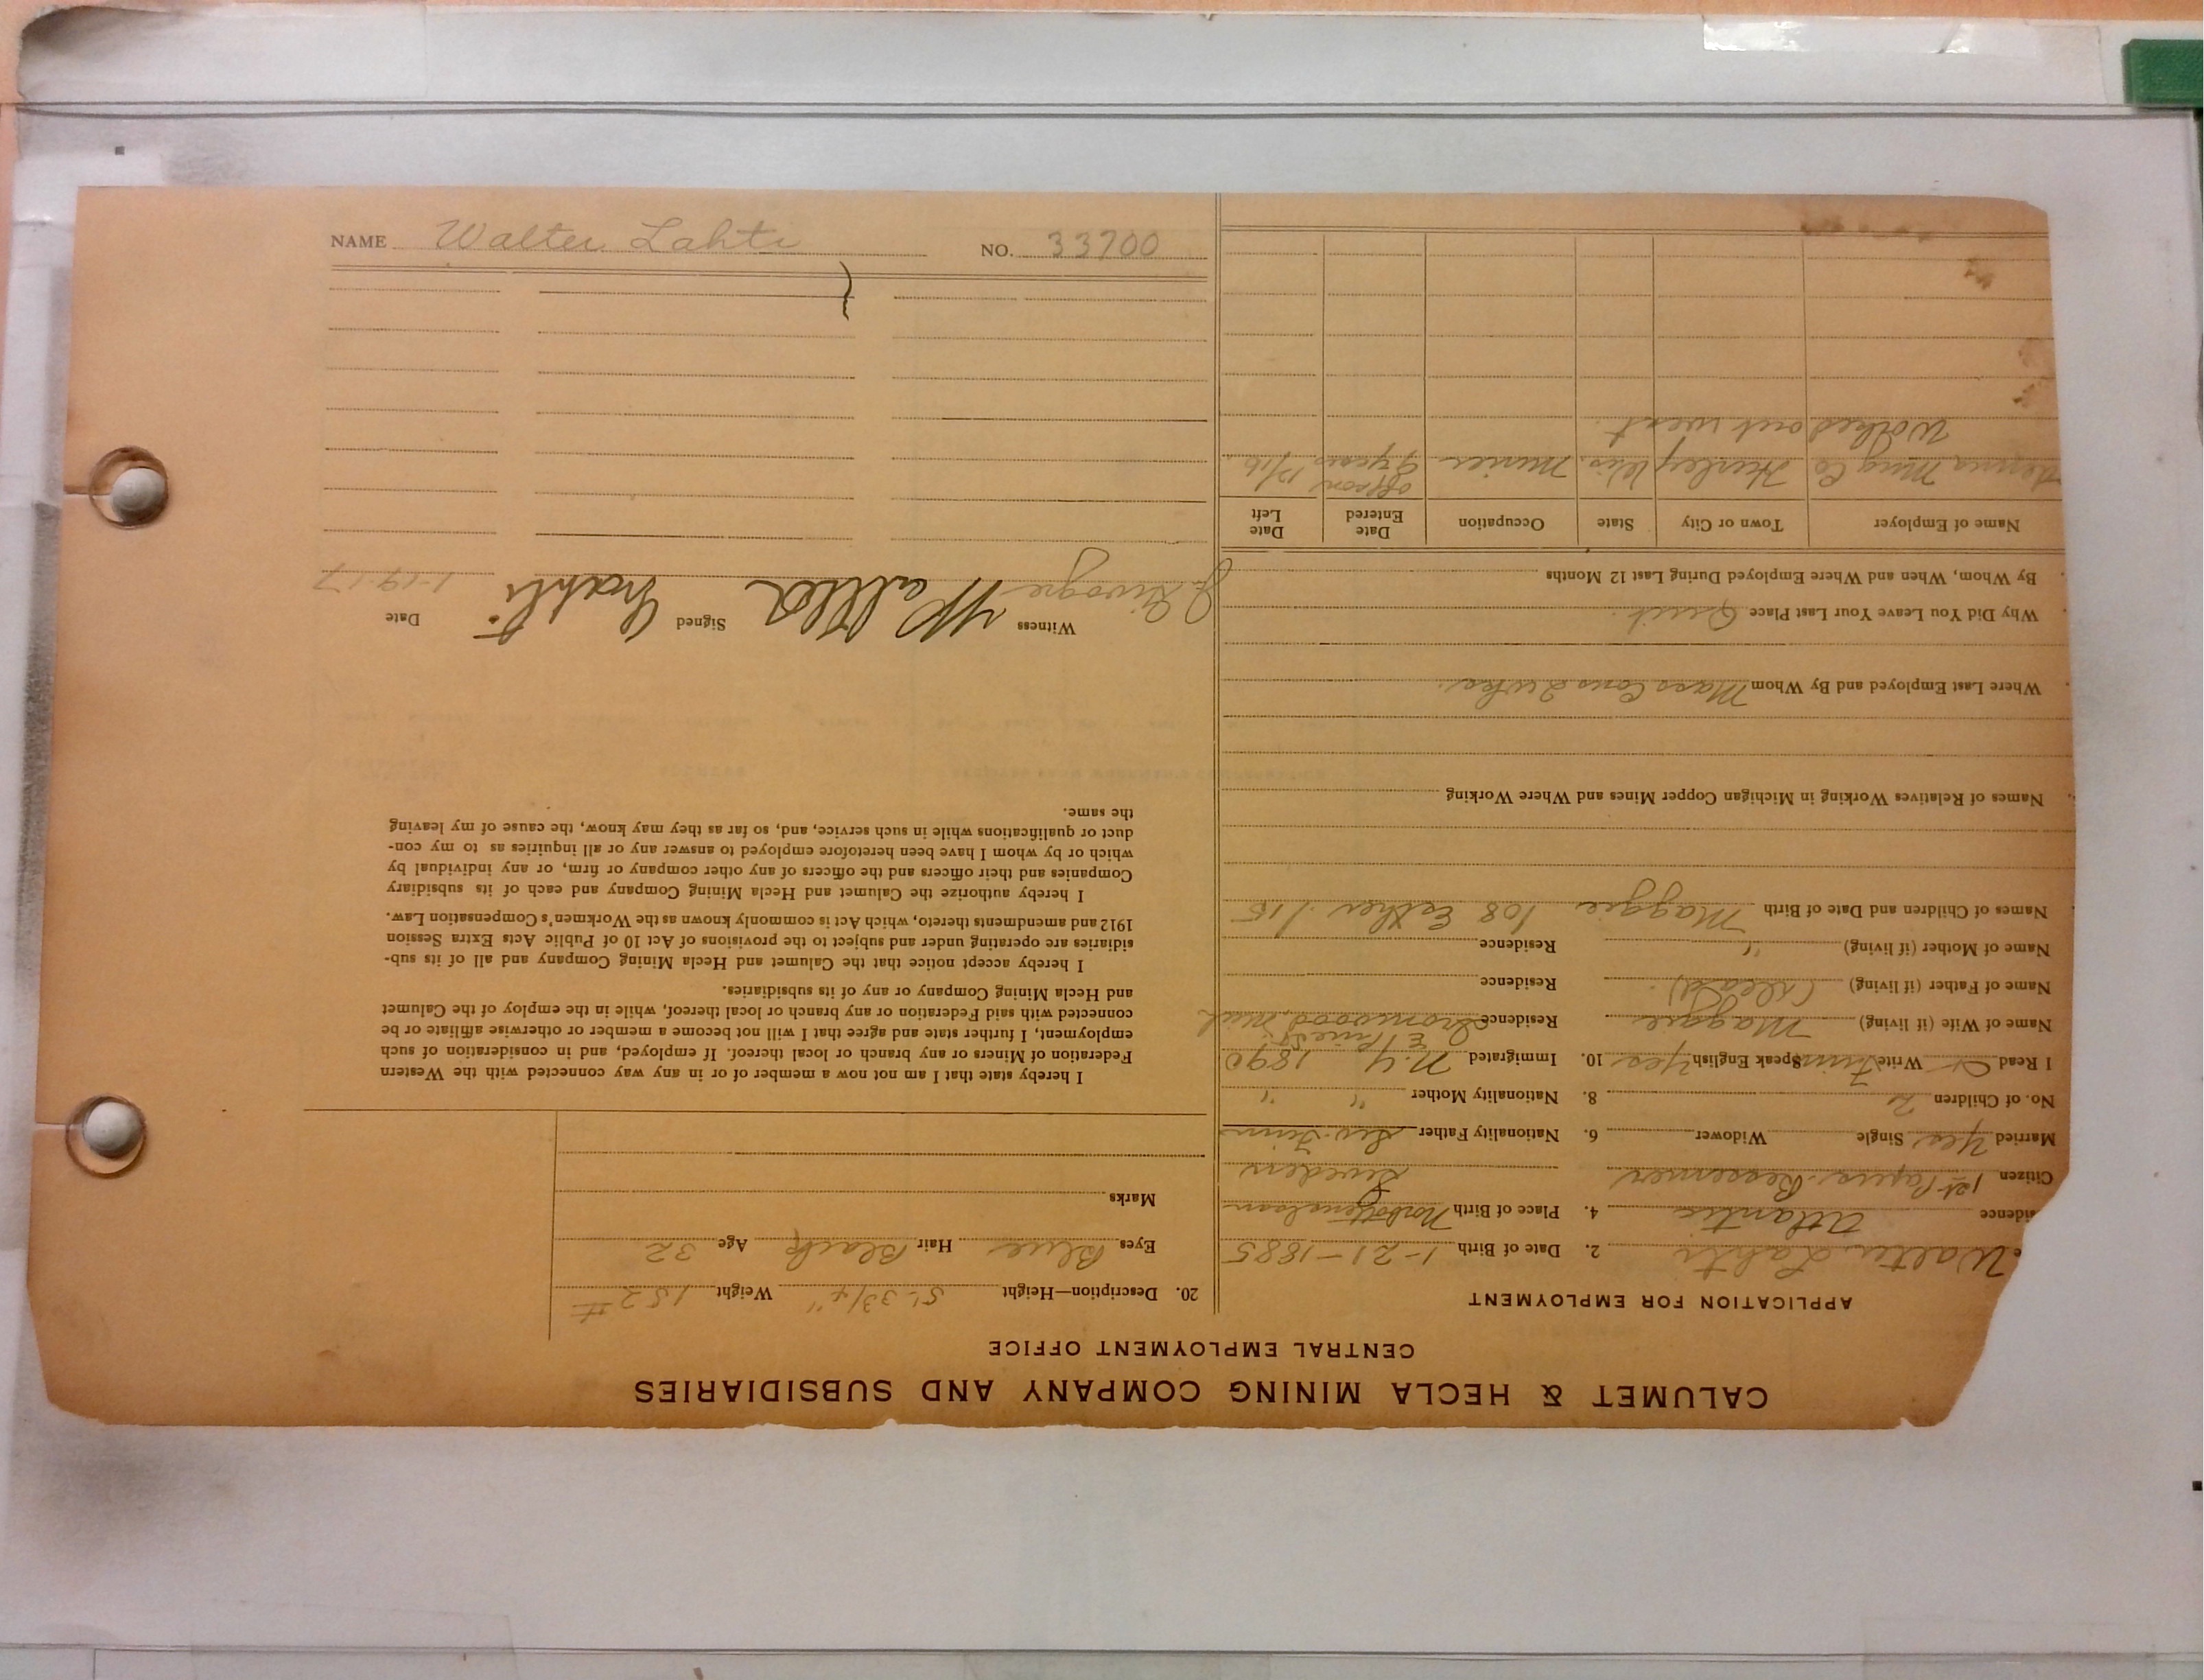 CALUMET & HECLA MINING COMPANY AND SUBSIDIARIES
CENTRAL EMPLOYMENT OFFICE
APPLICATION FOR EMPLOYMENT
e Walter Lahti 2. Date of Birth 1-21-1885
sidence Atlantic 4. Place of Birth
Citizen 1st Papers. Bessemer Sweden
Married Yes Single Widower 6. Nationality Father Finn
No. of Children 2 8. Nationality Mother " "
I Read Write Finn Speak English Yes 10. Immigrated N.Y. 1890
Name of Wife (if living) Maggie Residence Ironwood, Mich
Name of Father (if living) (dead) Residence
Name of Mother (if living) " Residence
Names of Children and Date of Birth Maggie /08 Esther /15
Names of Relatives Working in Michigan Copper Mines and Where Working
Where Last Employed and By Whom Mass Cons
Why Did You Leave Your Last Place Quit.
By Whom, When and Where Employed During Last 12 Months
Name of Employer Town or City State Occupation Date Entered Date Left
Ming Co Hurley Wis. Miner off & on 9 years 12/16
Worked out west.
20. Description—Height 5'-3 3/4" Weight 152 #
Eyes Blue Hair Black Age 32
Marks
I hereby state that I am not now a member of or in any way connected with the Western
Federation of Miners or any branch or local thereof. If employed, and in consideration of such
employment, I further state and agree that I will not become a member or otherwise affiliate or be
connected with said Federation or any branch or local thereof, while in the employ of the Calumet
and Hecla Mining Company or any of its subsidiaries.
I hereby accept notice that the Calumet and Hecla Mining Company and all of its sub-
sidiaries are operating under and subject to the provisions of Act 10 of Public Acts Extra Session
1912 and amendments thereto, which Act is commonly known as the Workmen's Compensation Law.
I hereby authorize the Calumet and Hecla Mining Company and each of its subsidiary
Companies and their officers and the officers of any other company or firm, or any individual by
which or by whom I have been heretofore employed to answer any or all inquiries as to my con-
duct or qualifications while in such service, and, so far as they may know, the cause of my leaving
the same.
Witness Signed Date
Walter Lahti 1-19-17
NAME Walter Lahti NO. 33700